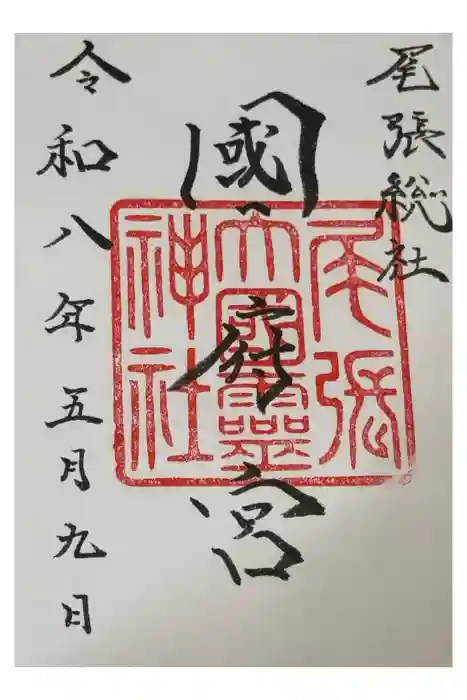 尾張総社
國府宮
尾張
大國靈
神社
令和八年五月九日